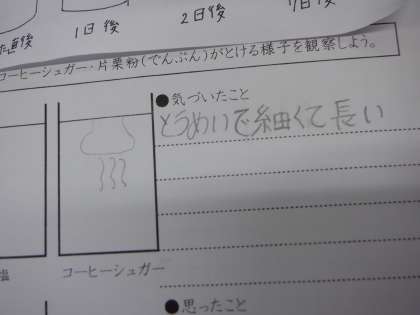 直後
1日後
2日後
7日後
コーヒーシュガー・片栗粉(でんぷん)がとける様子を観察しよう。
●気づいたこと
とうめいで細くて長い
塩
コーヒーシュガー
●思ったこと